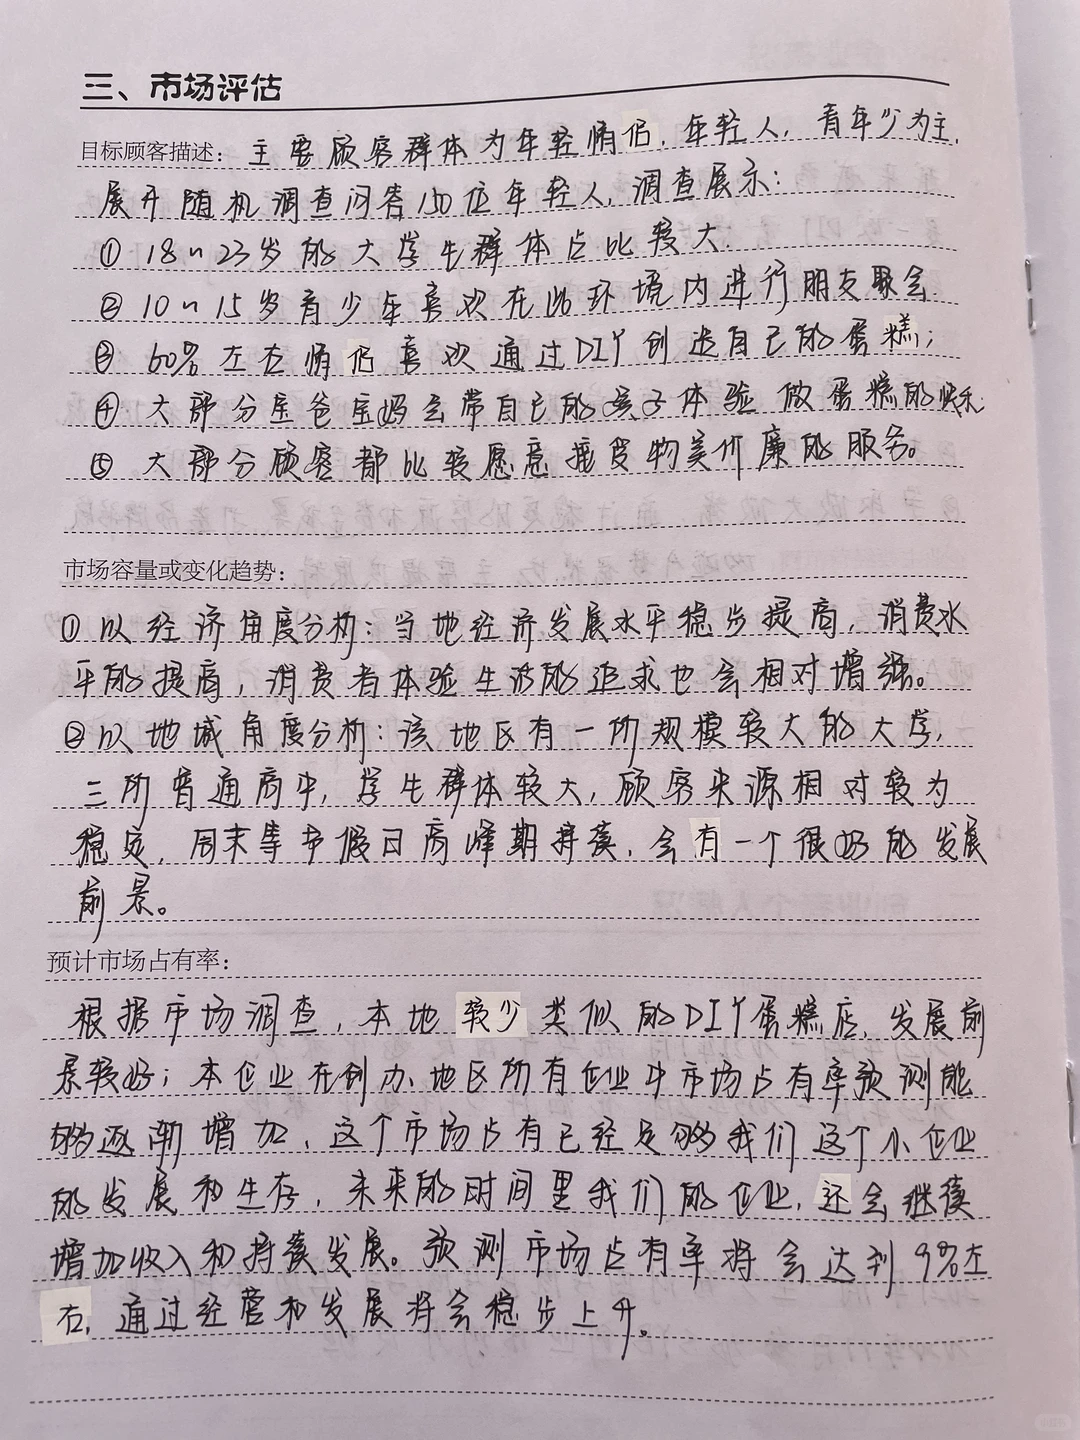 三、市场评估
目标顾客描述：主要顾客群体为年轻情侣，年轻人，青年少为主，
展开随机调查问答150位年轻人，调查展示：
① 18~23岁的大学生群体占比较大.
② 10~15岁青少年喜欢在此环境内进行朋友聚会
③ 60%左右情侣喜欢通过DIY创造自己的蛋糕；
④ 大部分宝爸宝妈会带自己的孩子体验做蛋糕的快乐
⑤ 大部分顾客都比较愿意接受物美价廉的服务。
市场容量或变化趋势：
① 以经济角度分析：当地经济发展水平稳步提高，消费水
平的提高，消费者体验生活的追求也会相对增强。
② 以地域角度分析：该地区有一所规模较大的大学，
三所普通高中，学生群体较大，顾客来源相对较为
稳定，周末等节假日高峰期持续，会有一个很好的发展
前景。
预计市场占有率：
根据市场调查，本地较少类似的DIY蛋糕店，发展前
景较好；本企业在创办地区所有企业中市场占有率预测能
够逐渐增加，这个市场占有已经足够我们这个小企业
的发展和生存，未来的时间里我们的企业，还会继续
增加收入和持续发展。预测市场占有率将会达到9%左
右，通过经营和发展将会稳步上升。